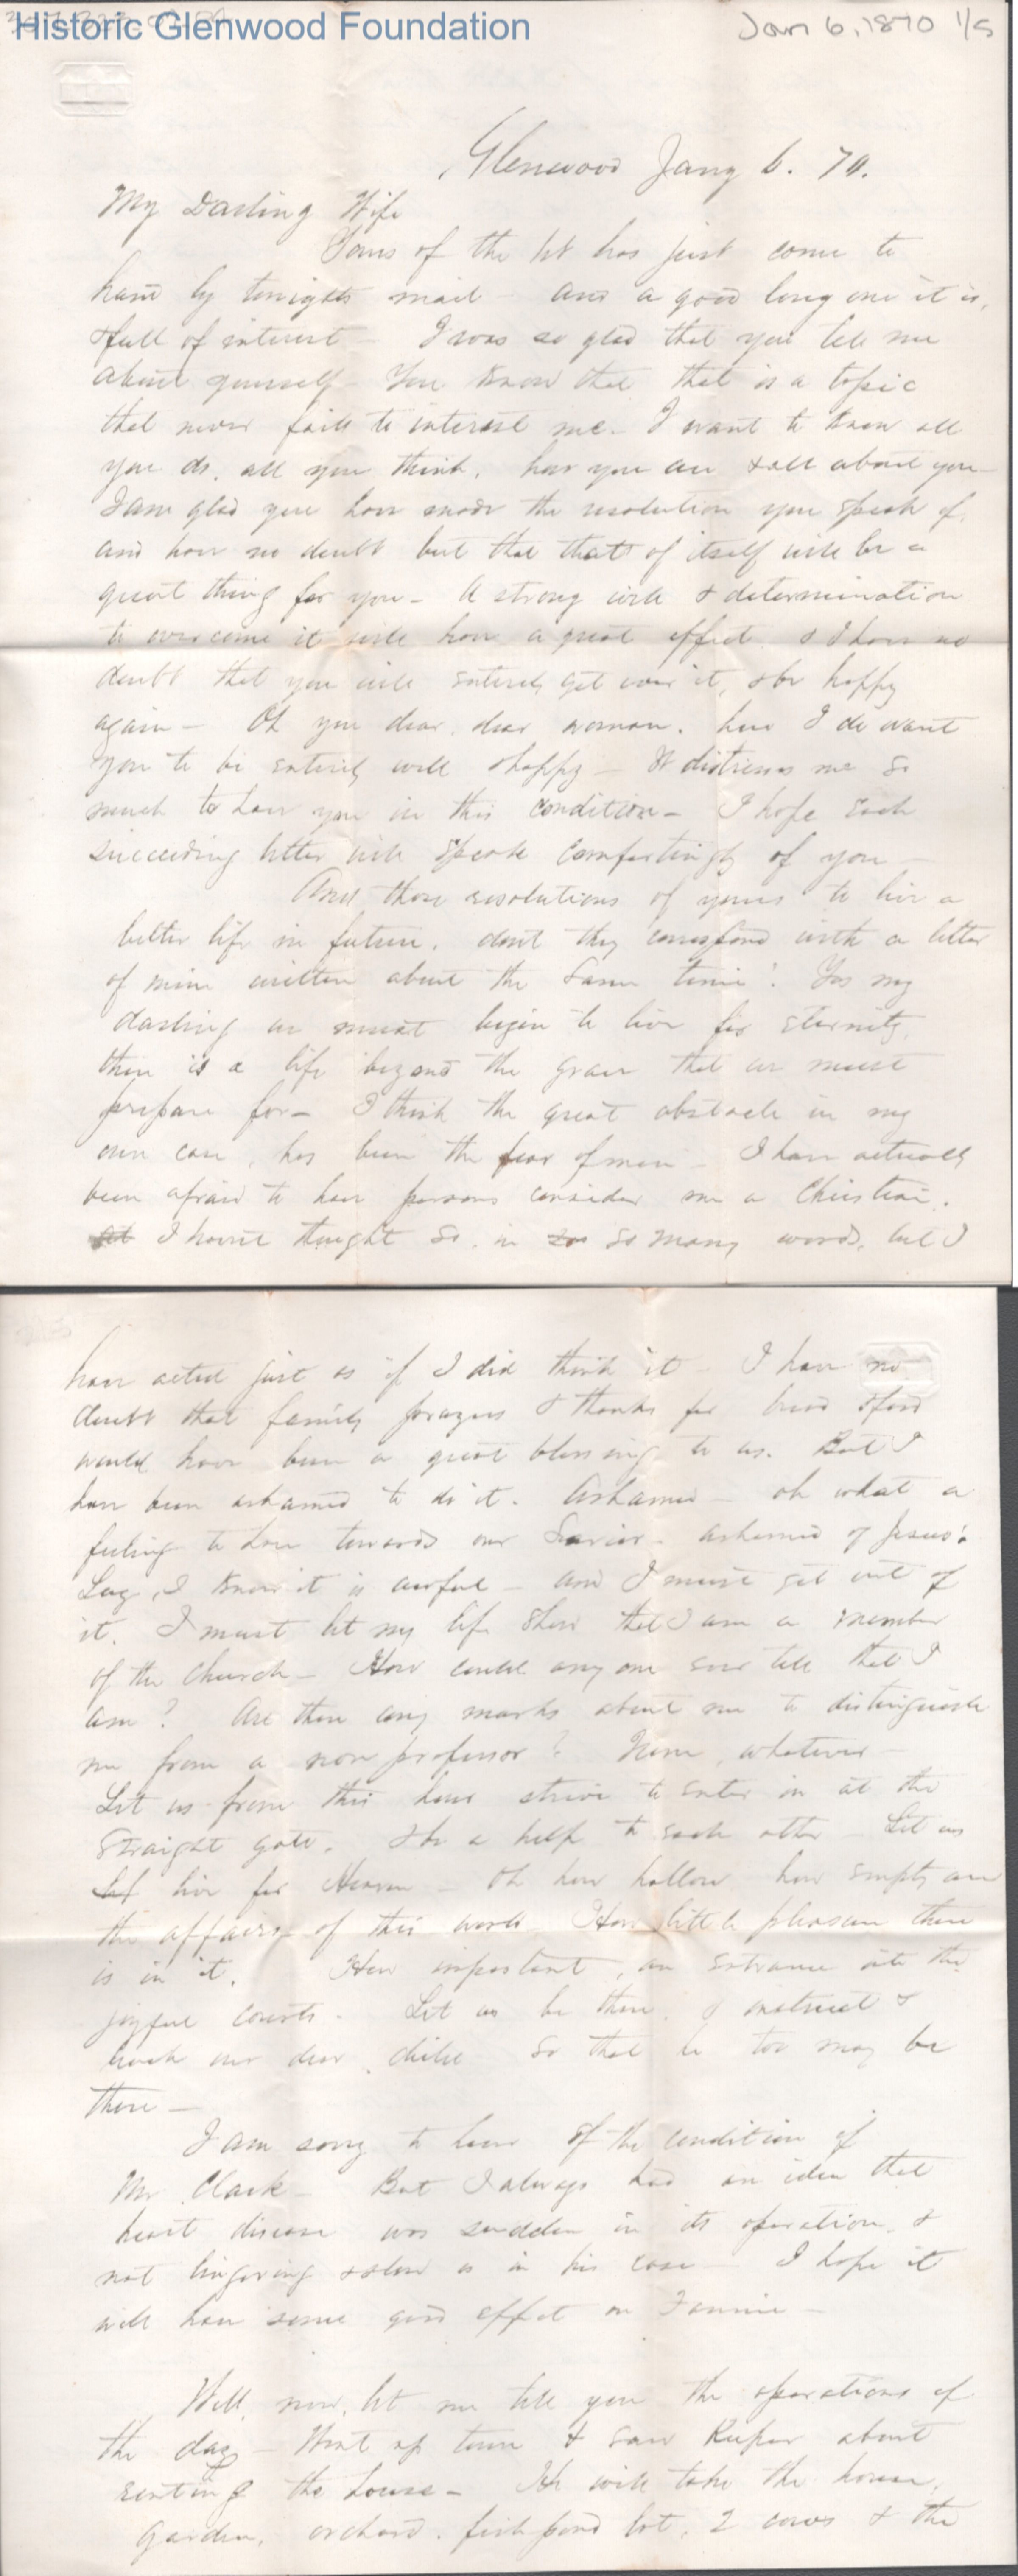 Historic Glenwood Foundation
Jan 6, 1870 1/5
Glenwood Jany 6. 70.
My Darling Wife
Yours of the 1st has just come to
hand by tonights mail - and a good long one it is,
& full of interest - I was so glad that you tell me
about yourself - You know that that is a topic
that never fails to interest me - I want to know all
you do, all you think, how you are & all about you -
I am glad you have made the resolution you speak of,
and have no doubt but that that of itself will be a
great thing for you - A strong will & determination
to overcome it will have a great effect & I have no
doubt that you will entirely get over it, & be happy
again - Oh you dear, dear woman, how I do want
you to be entirely well & happy - It distresses me so
much to have you in this condition - I hope each
succeeding letter will speak comfortingly of you -
And those resolutions of yours to live a
better life in future, dont they correspond with a letter
of mine written about the same time? Yes my
darling we must begin to live for eternity,
there is a life beyond the grave that we must
prepare for - I think the great obstacle in my
own case, has been the fear of man - I have actually
been afraid to have persons consider me a Christian.
I havent thought so, in so many words, but I
have acted just as if I did think it - I have no
doubt that family prayers & thanks for our food
would have been a great blessing to us. But I
have been ashamed to do it. Ashamed - oh what a
feeling to have towards our Savior - ashamed of Jesus!
I know it is awful - and I must get out of
it. I must let my life show that I am a member
of the church - How could any one ever tell that I
am? Are there any marks about me to distinguish
me from a non professor? None, whatever -
Let us from this hour strive to enter in at the
straight gate. & be a help to each other Let us
let live for Heaven - Oh how hollow how empty are
the affairs of this world How little pleasure there
is in it. How important, an entrance into the
joyful courts. Let us be there, & instruct &
teach our dear child so that he too may be
there -
I am sorry to hear of the condition of
Mr Clark - But I always had an idea that
heart disease was sudden in its operation, &
not lingering & slow as in his case - I hope it
will have some good effect on Fannie -
Well, now, let me tell you the operations of
the day - Went up town & saw Kuper about
renting the house - He will take the house,
garden, orchard, fish pond lot, 2 cows & the